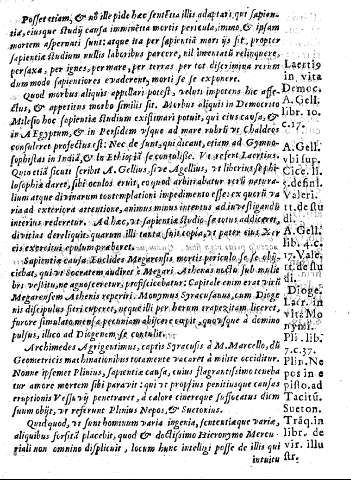 Posset etiam, & nō illepide hæc sentētia illis adaptari, qui sapien-
tia, eiusque studij causa imminētia mortis pericula, immò, & ipsam
mortem aspernati sunt: atque ita per sapientiā mori ijs sit, propter
sapientiæ studium nullis laboribus parcere, nil intentatū relinquere,
per saxa, per ignes, per mare, per terras per tot discrimina rerum
dum modo sapientiores evaderent, morti se se exponere.
Quod morbus aliquis appellari potest, velut impotens hic affe-
ctus, & appetitus morbo similis sit. Morbus aliquis in Democrito
Milesio hoc sapientiæ studium existimari potuit, qui eius causa, &
in AEgyptum, & in Persidem vsque ad mare rubrū vt Chaldeos
consuleret profectus est: Nec desunt, qui dicant, etiam ad Gymno-
sophistas in India, & in Ethiopiā se contulisse. Vt refert Laertius.
Quo etiā sicuti scribit A. Gellius, siue Agellius, vt liberius philo-
sophiæ daret, sibi oculos eruit, eo quod arbitrabatur rerū natura-
lium atque diuinarum contemplationi impedimento esse. ex quorū va
ria ad exteriora attentione, animus minus intentus ad inuestigandū
interius redderetur. Ad hæc, vt sapientiæ studio se totus addiceret,
diuitias derelīquit: quarum illi tanta fuit copia, vt pater eius Xer-
cis exercitui epulum præberet.
Sapientiæ causa Euclides Megarensis mortis periculo se se obij-
ciebat, qui vt Socratem audiret è Megari Athenas noctu sub mulie
bri vestitu, ne agnosceretur, proficiscebatur: Capitale enim erat virū
Megarensem Athenis reperiri. Monymus Syracusanus, cum Dioge
nis discipulus fieri cuperet, neque illi per herum trapezitam liceret,
furore simulato mensæ pecuniam abijcere cœpit, quousque à domino
pulsus, illico ad Diogenem se contulit.
Archimedes Agrigentinus, captis Syracusis à M. Marcello, dū
Geometricis machinationibus totamente vacaret à milite occiditur.
Nonne ipsemet Plinius, sapientiæ causa, cuius flagrantissimo teneba
tur amore mortem sibi parauit: qui vt propius penitiusque causas
eruptionis Vessuuij penetraret, à calore cinereque suffocatus diem
suum obijt, vt referunt Plinius Nepos, & Suetonius.
Quid quod, vt sunt hominum varia ingenia, sententiæque varia,
aliquibus forsitā placebit, quod & doctissimo Hieronymo Mercu-
riali non omnino displicuit, locum hunc intelligi posse de illis qui
intuitu
Laertiꝰ
in vita
Democ.
A. Gell.
libr. 10.
c. 17.
A. Gell.
vbi sup.
Cice. li.
5. definf.
Valeri.
tt. de stu
di.
A. Gell.
lib. 4. c.
17. Vale.
tt. de stu
di.
Dioge.
Laer. in
vita Mo
nymi.
Pli. lib.
7. c. 37.
Plin. Ne
pos in e
pist. ad
Tacitū.
Sueton.
Trāq. in
libr. de
vir. illu
str.